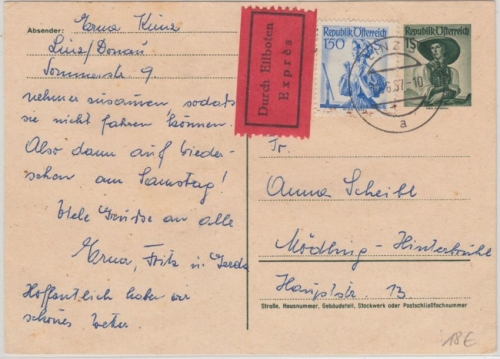 Absender: Erna Kunz
Linz/Donau
Sommerstr. 9
nehmer zusammen, sodass
sie nicht fahren können.
Also dann auf Wieder-
sehen am Samstag!
Viele Grüsse an alle
Erna, Fritz u. Gerda
Hoffentlich haben wir
schönes Wetter
Durch Eilboten
Exprès
Republik Österreich
1S50
Republik Österreich
1S
LINZ
6.57-10
a
Fr.
Anna Scheibl
Mödling-Hinterbrühl
Hauptstr. 13
Straße, Hausnummer, Gebäudeteil, Stockwerk oder Postschließfachnummer
18€